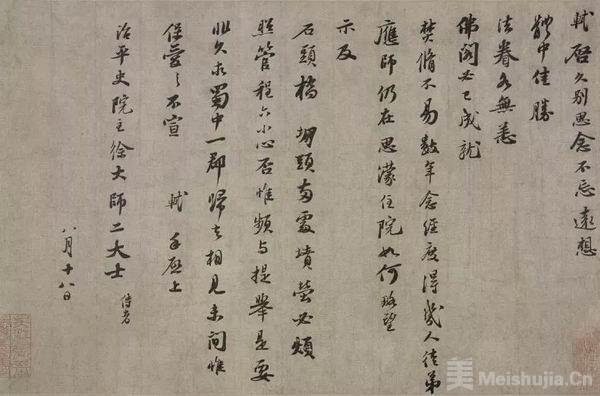 軾啓久別思念不忘遠想
體中佳勝
法眷各無恙
佛閣必已成就
焚脩不易數年念經度得幾人徒弟
應師仍在思濛住院如何略望
示及
石頭橋堋頭兩處墳塋必煩
照管程六小心否惟頻與提舉是要
非久求蜀中一郡歸去相見未間惟
保愛之不宣 軾手啓上
治平史院主徐大師二大士 侍者
八月十八日
美 Meishujia.Cn